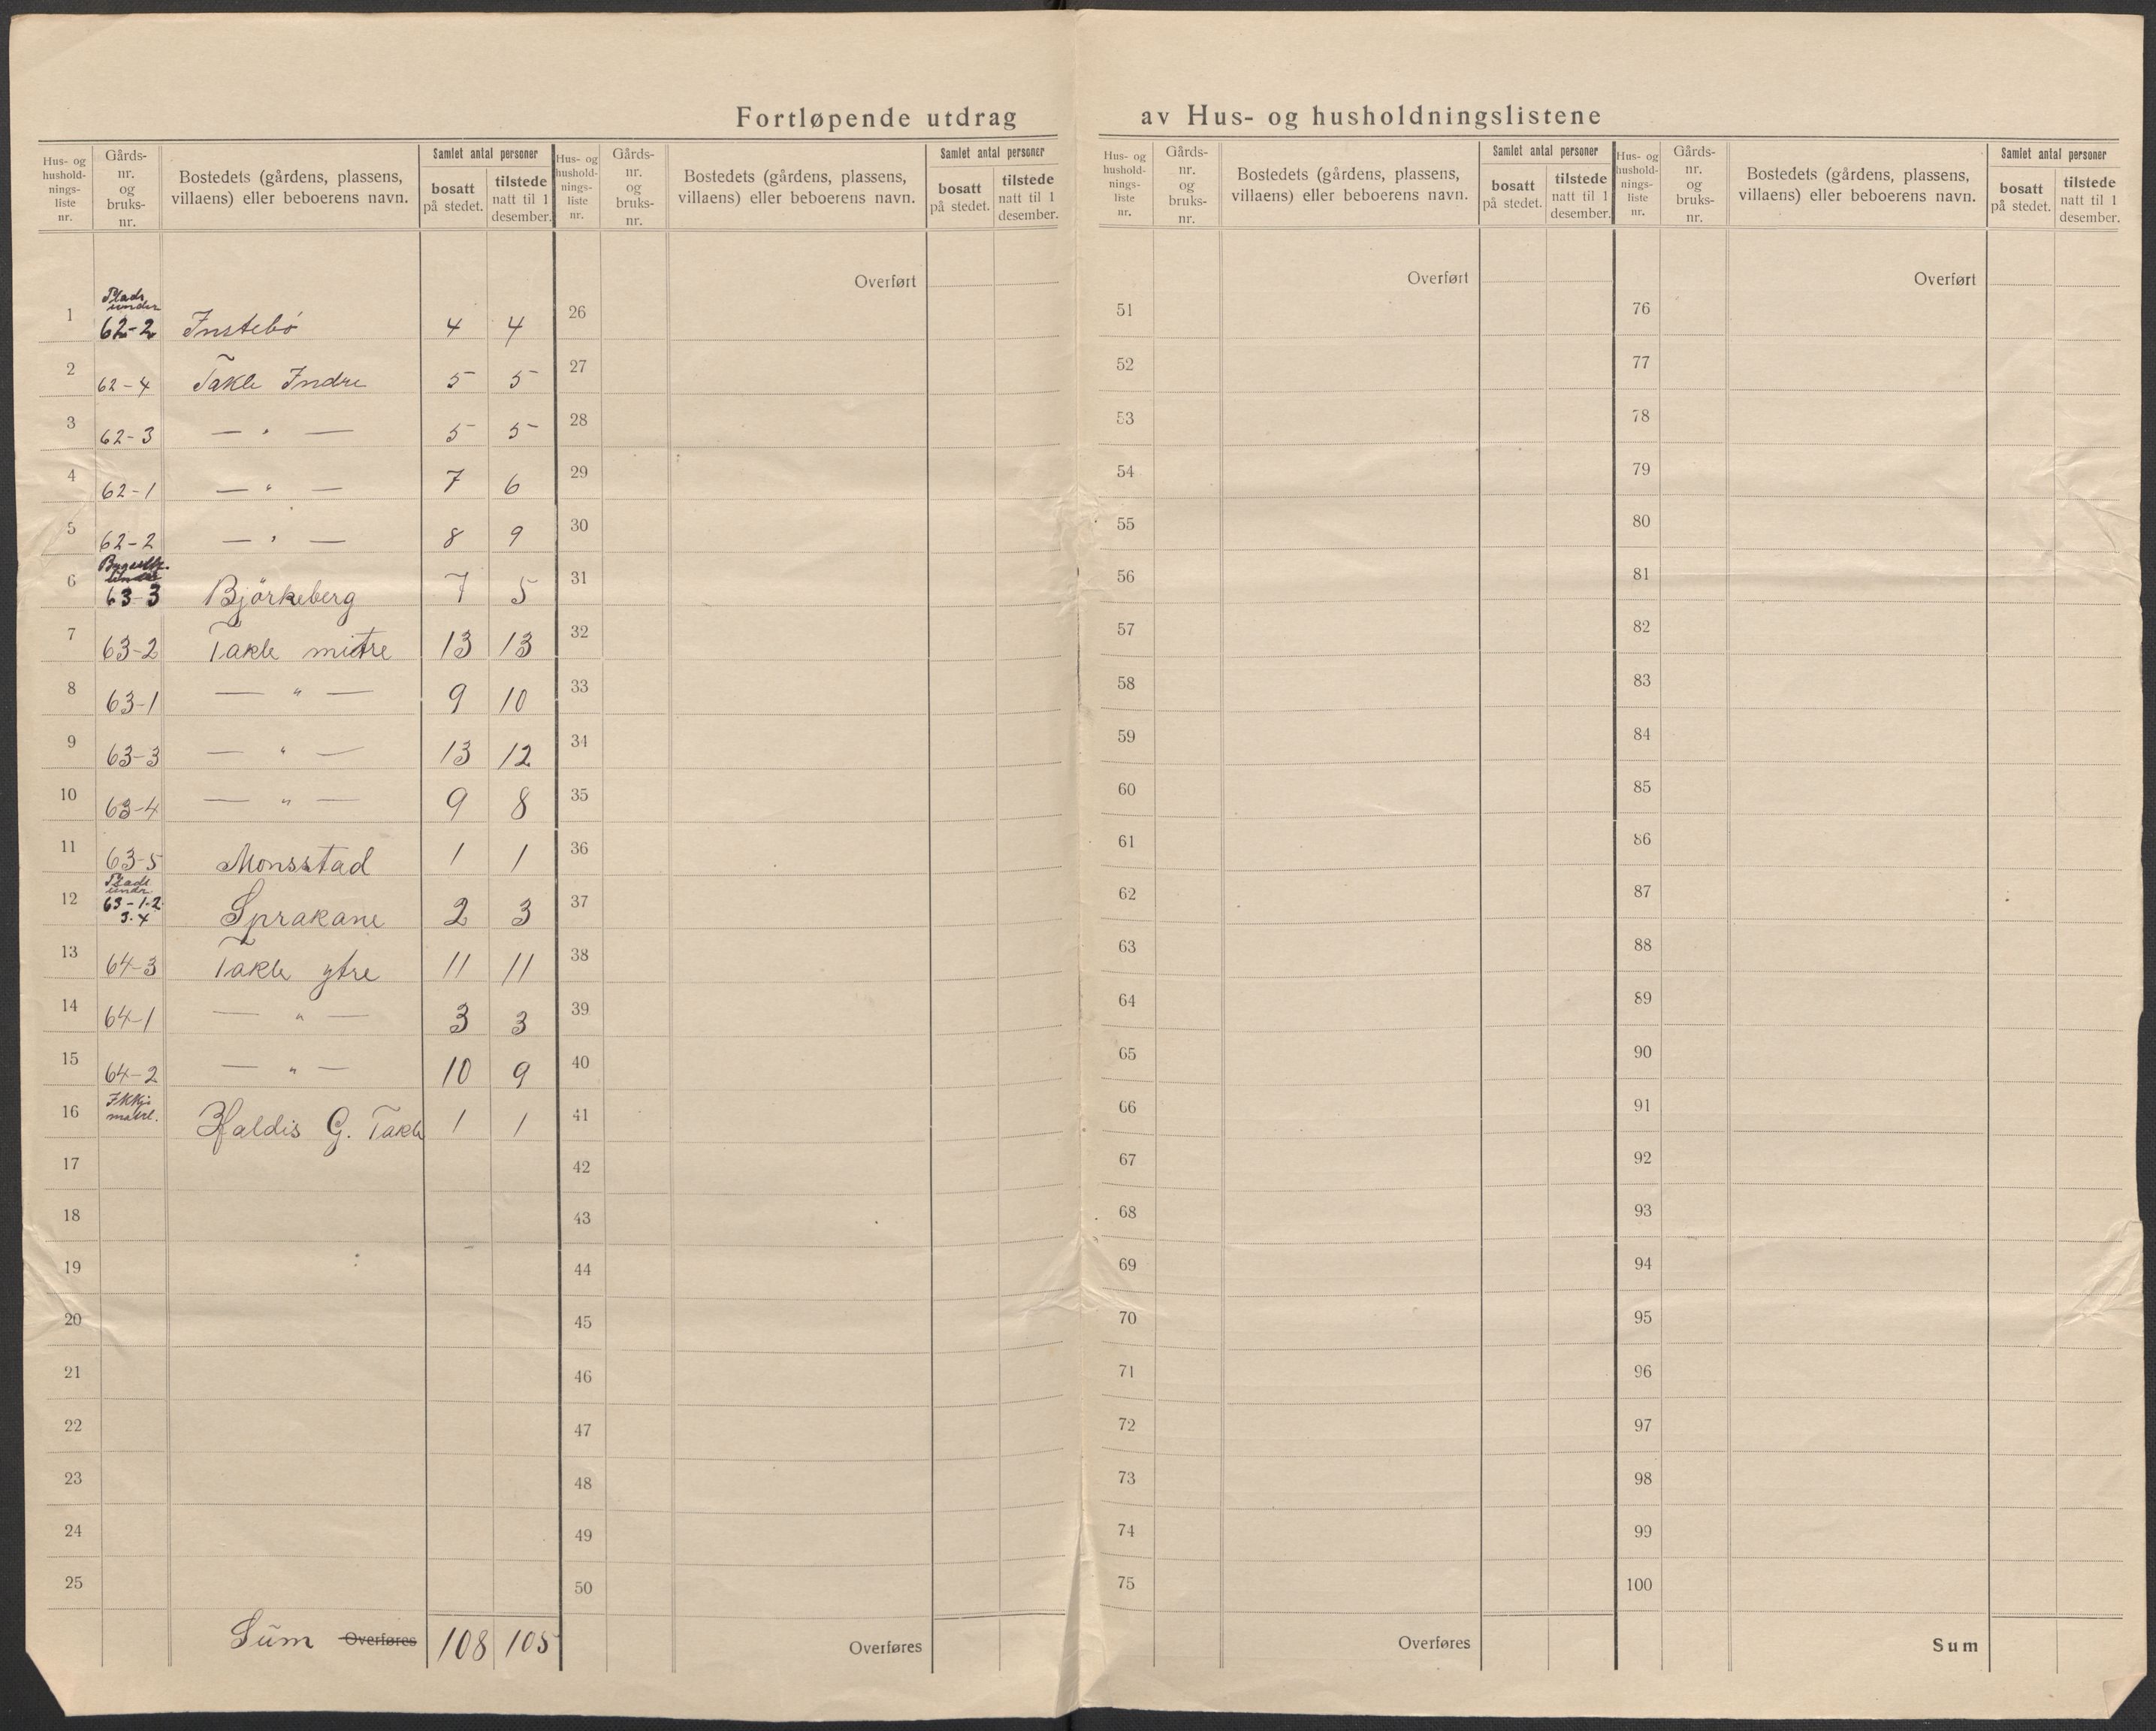 Fortløpende utdrag av Hus- og husholdningslistene
Hus- og hushold-nings-liste nr. Gårds-nr. og bruks-nr. Bostedets (gårdens, plassens, villaens) eller beboerens navn. Samlet antal personer bosatt på stedet. tilstede natt til 1 desember.
Hus- og hushold-nings-liste nr. Gårds-nr. og bruks-nr. Bostedets (gårdens, plassens, villaens) eller beboerens navn. Samlet antal personer bosatt på stedet. tilstede natt til 1 desember.
Hus- og hushold-nings-liste nr. Gårds-nr. og bruks-nr. Bostedets (gårdens, plassens, villaens) eller beboerens navn. Samlet antal personer bosatt på stedet. tilstede natt til 1 desember.
Hus- og hushold-nings-liste nr. Gårds-nr. og bruks-nr. Bostedets (gårdens, plassens, villaens) eller beboerens navn. Samlet antal personer bosatt på stedet. tilstede natt til 1 desember.
Overført Overført Overført
Plads under
1 62-2 Instebø 4 4 26 51 76
2 62-4 Takle Indre 5 5 27 52 77
3 62-3 — " — 5 5 28 53 78
4 62-1 — " — 7 6 29 54 79
5 62-2 — " — 8 9 30 55 80
under
6 63-3 Bjørkeberg 7 5 31 56 81
7 63-2 Takle mitre 13 13 32 57 82
8 63-1 — " — 9 10 33 58 83
9 63-3 — " — 13 12 34 59 84
10 63-4 — " — 9 8 35 60 85
11 63-5 Monsstad 1 1 36 61 86
Plads under
12 63-1.2 3.4 Sprakane 2 3 37 62 87
13 64-3 Takle ytre 11 11 38 63 88
14 64-1 — " — 3 3 39 64 89
15 64-2 — " — 10 9 40 65 90
16 Ikkje matrl. Haldis G. Takle 1 1 41 66 91
17 42 67 92
18 43 68 93
19 44 69 94
20 45 70 95
21 46 71 96
22 47 72 97
23 48 73 98
24 49 74 99
25 50 75 100
Sum Overføres 108 105 Overføres Overføres Sum